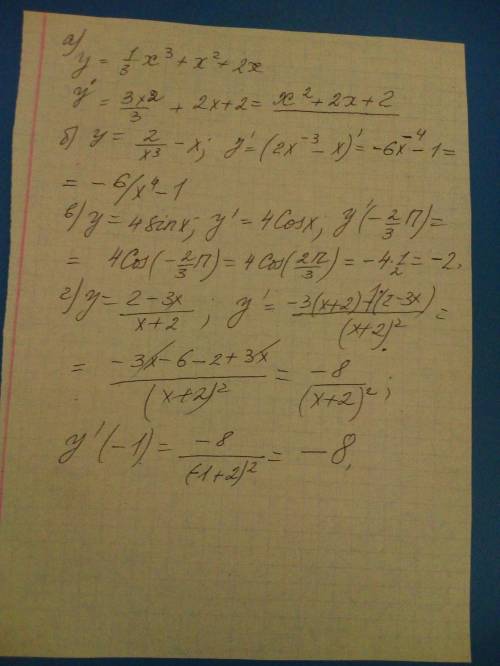 а) y = 1/3 x³ + x² + 2x
y' = 3x²/3 + 2x + 2 = x² + 2x + 2
б) y = 2/x³ - x; y' = (2x⁻³ - x)' = -6x⁻⁴ - 1 =
= -6/x⁴ - 1
в) y = 4 sinx; y' = 4 Cosx; y'(-2/3 П) =
= 4Cos(-2/3 П) = 4Cos(2П/3) = -4·1/2 = -2.
г) y = (2-3x)/(x+2); y' = (-3(x+2)-1·(2-3x))/(x+2)² =
= (-3x-6-2+3x)/(x+2)² = -8/(x+2)²;
y'(-1) = -8/(-1+2)² = -8.